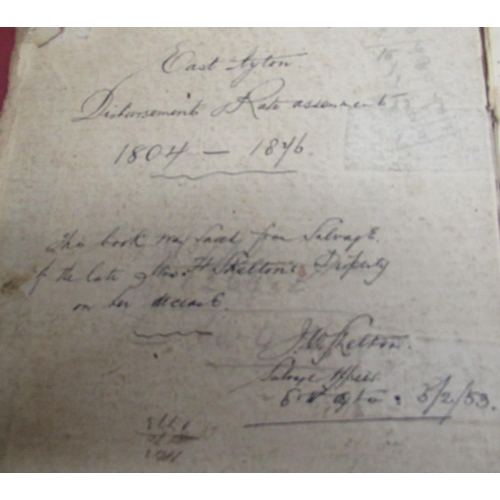 East Ayton.
Disbursements & Rate assesments
1804 — 1846.
This book was saved from Salvage.
of the late Miss H Skelton's Property
on her decease.
J.W. Skelton.
Salvage
Ayton. 5/2/53.